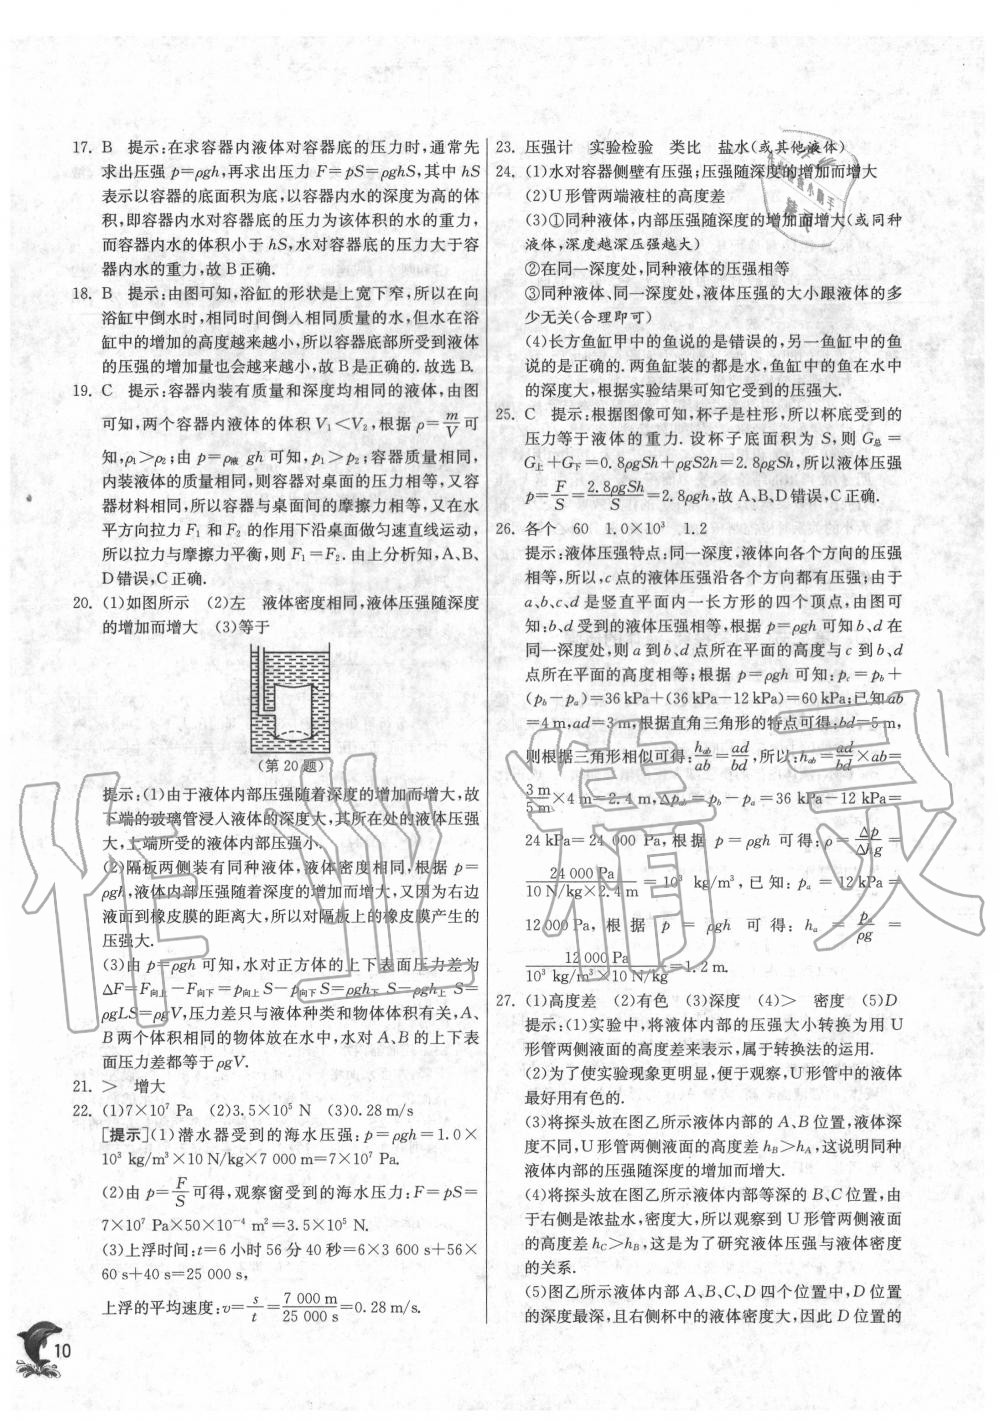 17. B 提示:在求容器内液体对容器底的压力时,通常先
求出压强 p=ρgh,再求出压力 F=pS=ρghS,其中 hS
表示以容器的底面积为底,以容器内水的深度为高的体
积,即容器内水对容器底的压力为该体积的水的重力,
而容器内水的体积小于 hS,水对容器底的压力大于容
器内水的重力,故 B 正确.
18. B 提示:由图可知,浴缸的形状是上宽下窄,所以在向
浴缸中倒水时,相同时间倒入相同质量的水,但水在浴
缸中的增加的高度越来越小,所以容器底部所受到液体
的压强的增加量越来越小,故 B 是正确的. 故选 B.
19. C 提示:容器内装有质量和深度均相同的液体,由图
可知,两个容器内液体的体积 V₁<V₂,根据 ρ=m/V 可
知,ρ₁>ρ₂;由 p=ρ液 gh 可知,p₁>p₂;容器质量相同,
内装液体的质量相同,则容器对桌面的压力相同,又容
器材料相同,所以容器与桌面间的摩擦力相等,又在水
平方向拉力 F₁ 和 F₂ 的作用下沿桌面做匀速直线运动,
所以拉力与摩擦力平衡,则 F₁=F₂. 由上分析知,A、B、
D 错误,C 正确.
20. (1)如图所示 (2)左 液体密度相同,液体压强随深度
的增加而增大 (3)等于
(第 20 题)
提示:(1)由于液体内部压强随着深度的增加而增大,故
下端的玻璃管浸入液体的深度大,其所在处的液体压强
大,上端所受的液体压强小.
(2)隔板两侧装有同种液体,液体密度相同,根据 p=
ρgh,液体内部压强随着深度的增加而增大,又因为右边
液面到橡皮膜的距离大,所以对隔板上的橡皮膜产生的
压强大.
(3)由 p=ρgh 可知,水对正方体的上下表面压力差为
ΔF=F向上-F向下=p向上S-p向下S=ρgh下 S-ρgh上 S=
ρgLS=ρgV,压力差只与液体种类和物体体积有关,A、
B 两个体积相同的物体放在水中,水对 A、B 的上下表
面压力差都等于 ρgV.
21. > 增大
22. (1)7×10⁷ Pa (2)3.5×10⁵ N (3)0.28 m/s
[提示](1)潜水器受到的海水压强:p=ρgh=1.0×
10³ kg/m³×10 N/kg×7 000 m=7×10⁷ Pa.
(2)由 p=F/S 可得,观察窗受到的海水压力:F=pS=
7×10⁷ Pa×50×10⁻⁴ m²=3.5×10⁵ N.
(3)上浮时间:t=6 小时 56 分 40 秒=6×3 600 s+56×
60 s+40 s=25 000 s,
上浮的平均速度:v=s/t=7 000 m/25 000 s=0.28 m/s.
10
23. 压强计 实验检验 类比 盐水(或其他液体)
24. (1)水对容器侧壁有压强;压强随深度的增加而增大
(2)U 形管两端液柱的高度差
(3)①同种液体,内部压强随深度的增加而增大(或同种
液体,深度越深压强越大)
②在同一深度处,同种液体的压强相等
③同种液体、同一深度处,液体压强的大小跟液体的多
少无关(合理即可)
(4)长方鱼缸甲中的鱼说的是错误的,另一鱼缸中的鱼
说的是正确的. 两鱼缸装的都是水,鱼缸中的鱼在水中
的深度大,根据实验结果可知它受到的压强大.
25. C 提示:根据图像可知,杯子是柱形,所以杯底受到的
压力等于液体的重力. 设杯子底面积为 S,则 G总=
G上+G下=0.8ρgSh+ρgS2h=2.8ρgSh,所以液体压强
p=F/S=2.8ρgSh/S=2.8ρgh,故 A、B、D 错误,C 正确.
26. 各个 60 1.0×10³ 1.2
提示:液体压强特点:同一深度,液体向各个方向的压强
相等,所以,c 点的液体压强沿各个方向都有压强;由于
a、b、c、d 是竖直平面内一长方形的四个顶点,由图可
知:b、d 受到的液体压强相等,根据 p=ρgh 可知 b、d 在
同一深度处,则 a 到 b、d 点所在平面的高度与 c 到 b、d
点所在平面的高度相等;根据 p=ρgh 可知:pc=pb+
(pb-pa)=36 kPa+(36 kPa-12 kPa)=60 kPa;已知 ab
=4 m,ad=3 m,根据直角三角形的特点可得:bd=5 m,
则根据三角形相似可得:hab/ab=ad/bd,所以:hab=ad/bd×ab=
3 m/5 m×4 m=2.4 m,Δpab=pb-pa=36 kPa-12 kPa=
24 kPa=24 000 Pa,根据 p=ρgh 可得:ρ=Δp/Δhg=
24 000 Pa/10 N/kg×2.4 m=10³ kg/m³,已知:pa=12 kPa=
12 000 Pa,根据 p=ρgh 可得:ha=pa/ρg=
12 000 Pa/10³ kg/m³×10 N/kg=1.2 m.
27. (1)高度差 (2)有色 (3)深度 (4)> 密度 (5)D
提示:(1)实验中,将液体内部的压强大小转换为用 U
形管两侧液面的高度差来表示,属于转换法的运用.
(2)为了使实验现象更明显,便于观察,U 形管中的液体
最好用有色的.
(3)将探头放在图乙所示液体内部的 A、B 位置,液体深
度不同,U 形管两侧液面的高度差 hB>hA,这说明同种
液体内部的压强随深度的增加而增大.
(4)将探头放在图乙所示液体内部等深的 B、C 位置,由
于右侧是浓盐水,密度大,所以观察到 U 形管两侧液面
的高度差 hC>hB,这是为了研究液体压强与液体密度
的关系.
(5)图乙所示液体内部 A、B、C、D 四个位置中,D 位置
的深度最深,且右侧杯中的液体密度大,因此 D 位置的
作业精灵